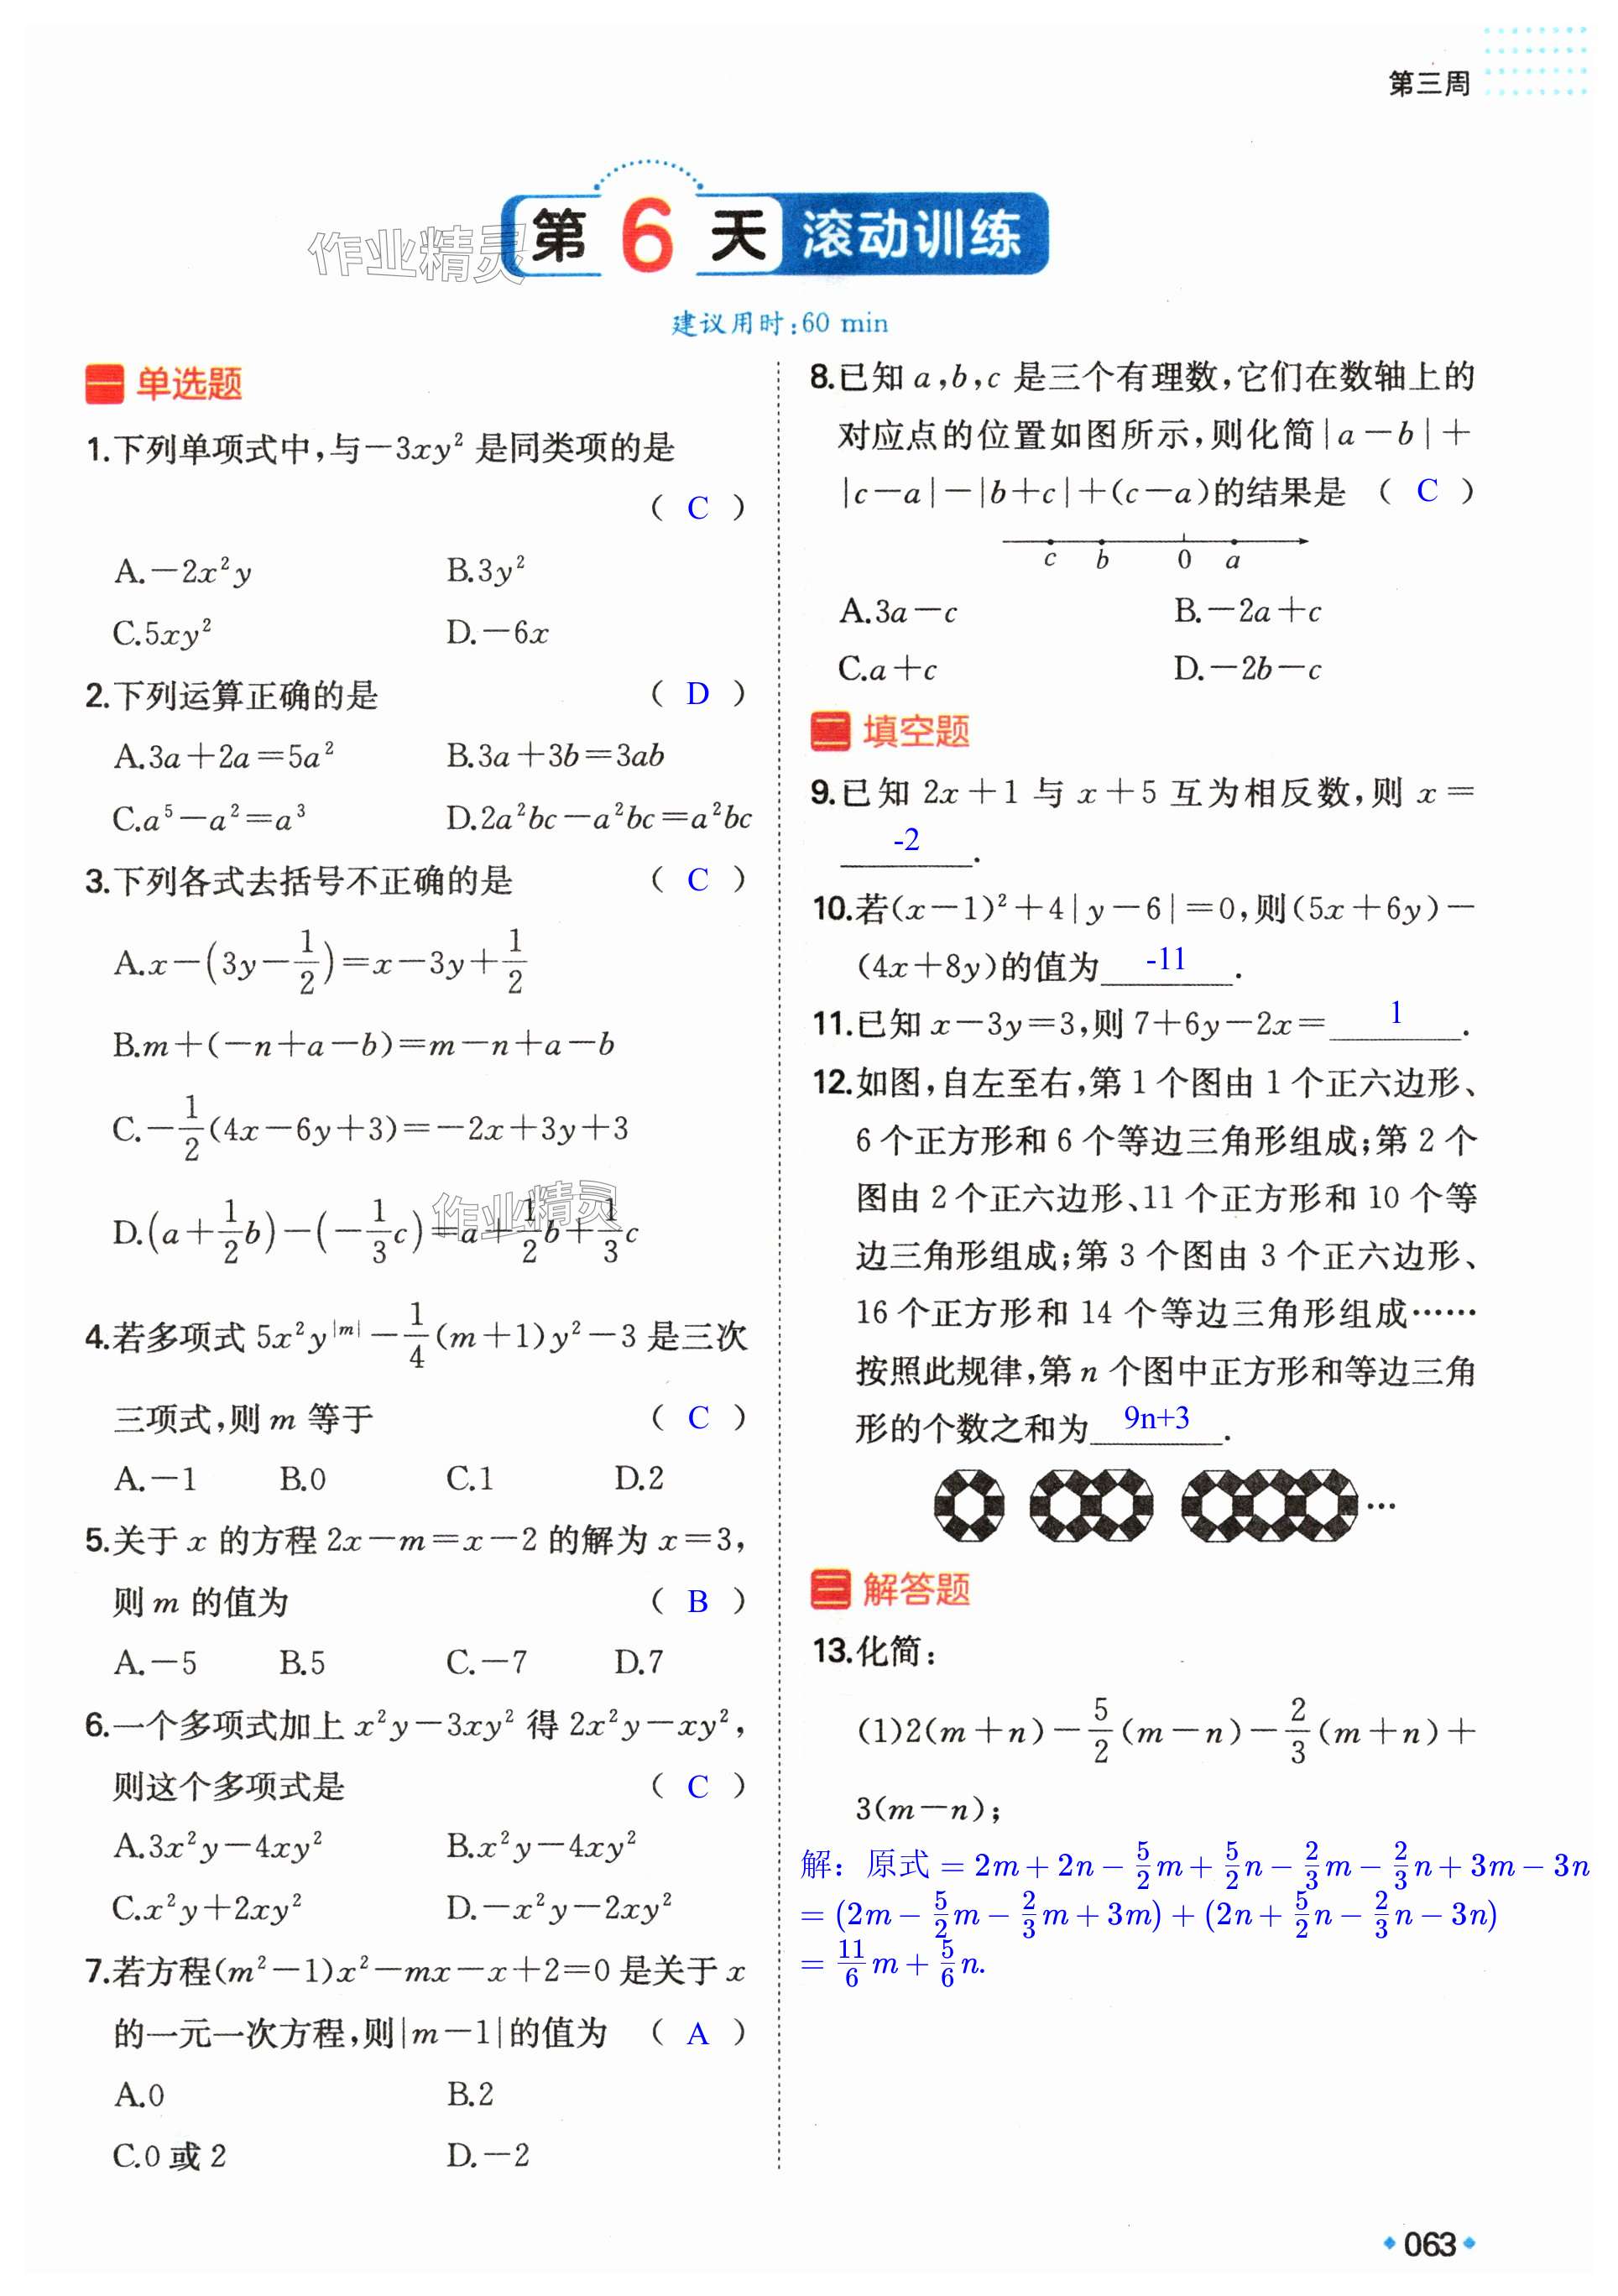 第三周
第 6 天 滚动训练
作业精灵
建议用时:60 min
一 单选题
1.下列单项式中,与－3xy² 是同类项的是
( C )
A.－2x²y B.3y²
C.5xy² D.－6x
2.下列运算正确的是 ( D )
A.3a＋2a＝5a² B.3a＋3b＝3ab
C.a⁵－a²＝a³ D.2a²bc－a²bc＝a²bc
3.下列各式去括号不正确的是 ( C )
A.x－(3y－1/2)＝x－3y＋1/2
B.m＋(－n＋a－b)＝m－n＋a－b
C.－1/2(4x－6y＋3)＝－2x＋3y＋3
作业精灵
D.(a＋1/2b)－(－1/3c)＝a＋1/2b＋1/3c
4.若多项式 5x²y^|m|－1/4(m＋1)y²－3 是三次
三项式,则 m 等于 ( C )
A.－1 B.0 C.1 D.2
5.关于 x 的方程 2x－m＝x－2 的解为 x＝3,
则 m 的值为 ( B )
A.－5 B.5 C.－7 D.7
6.一个多项式加上 x²y－3xy² 得 2x²y－xy²,
则这个多项式是 ( C )
A.3x²y－4xy² B.x²y－4xy²
C.x²y＋2xy² D.－x²y－2xy²
7.若方程(m²－1)x²－mx－x＋2＝0 是关于 x
的一元一次方程,则|m－1|的值为 ( A )
A.0 B.2
C.0 或 2 D.－2
8.已知 a,b,c 是三个有理数,它们在数轴上的
对应点的位置如图所示,则化简|a－b|＋
|c－a|－|b＋c|＋(c－a)的结果是 ( C )
c b 0 a
A.3a－c B.－2a＋c
C.a＋c D.－2b－c
二 填空题
9.已知 2x＋1 与 x＋5 互为相反数,则 x＝
-2.
10.若(x－1)²＋4|y－6|＝0,则(5x＋6y)－
(4x＋8y)的值为 -11.
11.已知 x－3y＝3,则 7＋6y－2x＝ 1.
12.如图,自左至右,第 1 个图由 1 个正六边形、
6 个正方形和 6 个等边三角形组成;第 2 个
图由 2 个正六边形、11 个正方形和 10 个等
边三角形组成;第 3 个图由 3 个正六边形、
16 个正方形和 14 个等边三角形组成……
按照此规律,第 n 个图中正方形和等边三角
形的个数之和为 9n+3.
…
三 解答题
13.化简:
(1)2(m＋n)－5/2(m－n)－2/3(m＋n)＋
3(m－n);
解：原式 = 2m + 2n − 5/2m + 5/2n − 2/3m − 2/3n + 3m − 3n
= (2m − 5/2m − 2/3m + 3m) + (2n + 5/2n − 2/3n − 3n)
= 11/6m + 5/6n.
063